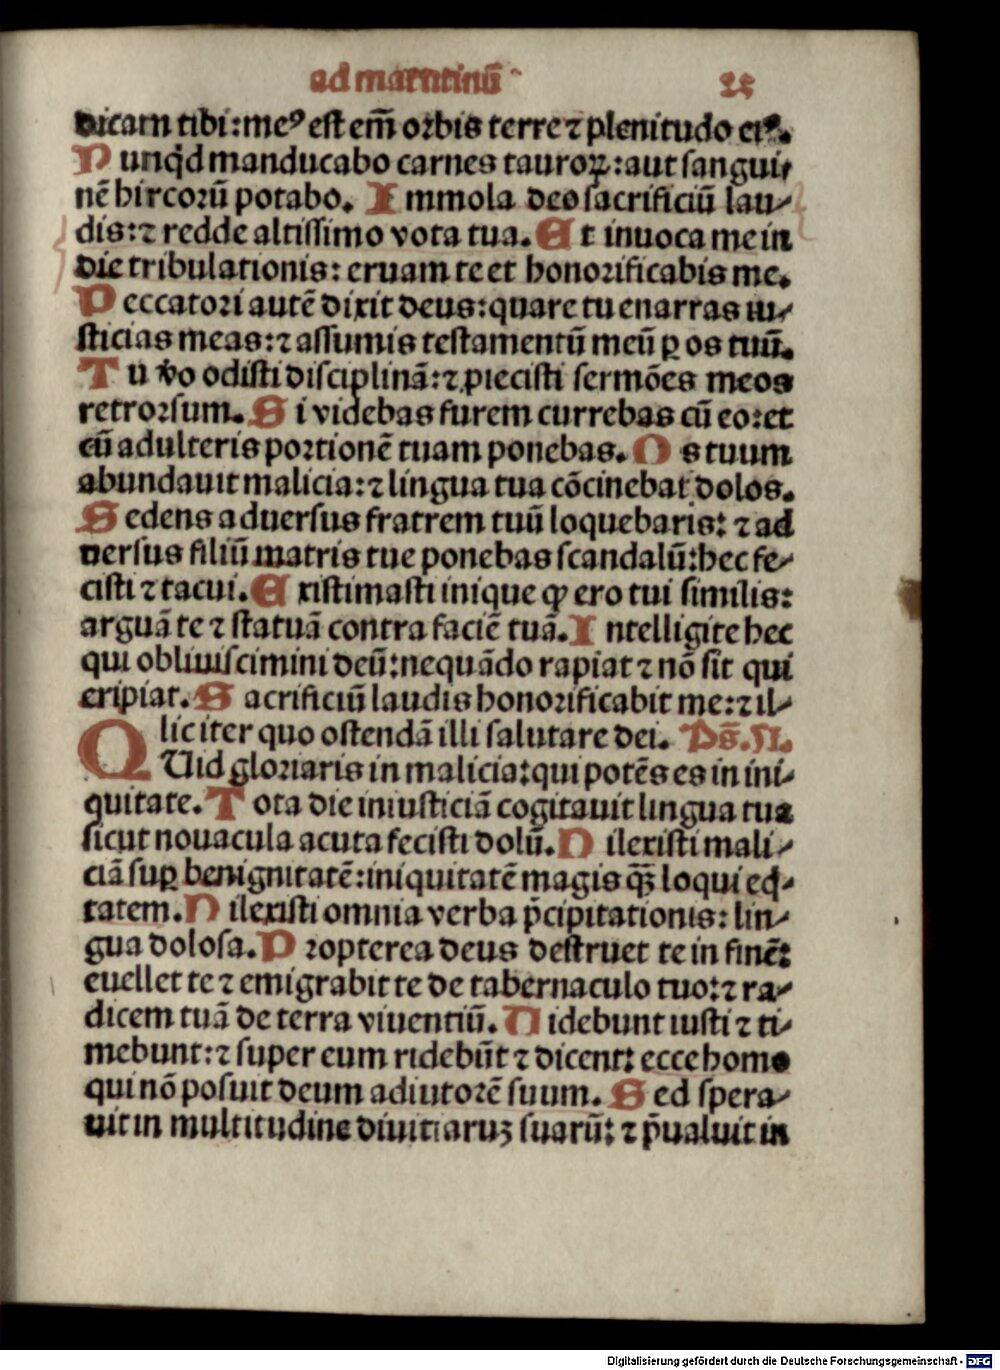 ad matutinū 25
dicam tibi: meꝰ est em̄ orbis terre ⁊ plenitudo eiꝰ.
N unqd̄ manducabo carnes tauroꝝ: aut sangui⸗
nē hircorū potabo. I mmola deo sacrificiū lau⸗
dis: ⁊ redde altissimo vota tua. E t inuoca me in
die tribulationis: eruam te et honorificabis me.
P eccatori autē dixit deus: quare tu enarras iu⸗
sticias meas: ⁊ assumis testamentū meū ꝑ os tuū.
T u v̄o odisti disciplinā: ⁊ ꝓiecisti sermōes meos
retrorsum. S i videbas furem currebas cū eo: et
cū adulteris portionē tuam ponebas. O s tuum
abundauit malicia: ⁊ lingua tua cōcinebat dolos.
S edens aduersus fratrem tuū loquebaris: ⁊ ad
uersus filiū matris tue ponebas scandalū: hec fe⸗
cisti ⁊ tacui. E xistimasti inique ꝙ ero tui similis:
arguā te ⁊ statuā contra faciē tuā. I ntelligite hec
qui obliuiscimini deū: nequādo rapiat ⁊ nō sit qui
eripiat. S acrificiū laudis honorificabit me: ⁊ il⸗
lic iter quo ostendā illi salutare dei. Ps̄. LI.
Q Uid gloriaris in malicia: qui potēs es in ini⸗
quitate. T ota die iniusticiā cogitauit lingua tua
sicut nouacula acuta fecisti dolū. D ilexisti mali⸗
ciā suꝑ benignitatē: iniquitatē magis qᷓ loqui eq̄⸗
tatem. D ilexisti omnia verba p̄cipitationis: lin⸗
gua dolosa. P ropterea deus destruet te in finē:
euellet te ⁊ emigrabit te de tabernaculo tuo: ⁊ ra⸗
dicem tuā de terra viuentiū. U idebunt iusti ⁊ ti⸗
mebunt: ⁊ super eum ridebūt ⁊ dicent: ecce homo
qui nō posuit deum adiutorē suum. S ed spera⸗
uit in multitudine diuitiaruꝫ suarū: ⁊ p̄ualuit in
Digitalisierung gefördert durch die Deutsche Forschungsgemeinschaft - DFG